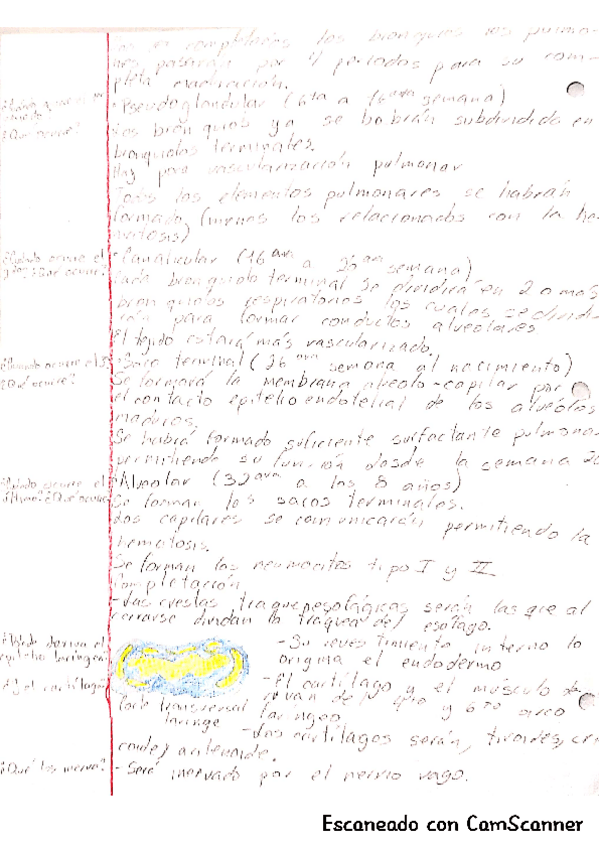 completarse los bronquios los pulmo-
nes pasarán por 4 periodos para su com-
pleta maduración.
-Pseudoglandular (6ta a 16ava semana)
¿Qué ocurre?
Los bronquios ya se habrán subdividido en
bronquiolos terminales.
Hay para vascularización pulmonar
Todos los elementos pulmonares se habrán
formado (menos los relacionados con la he-
matosis)
¿Cuándo ocurre el
¿Qué ocurre?
-Canalicular (16ava a 26ava semana)
Cada bronquiolo terminal se dividirá en 2 o más
bronquiolos respiratorios los cuales se dividi-
rán para formar conductos alveolares
El tejido estará más vascularizado.
¿Cuándo ocurre el 3
¿Qué ocurre?
-Saco terminal (26ava semana al nacimiento)
Se formará la membrana alveolo-capilar por
el contacto epitelio endotelial de los alveólos
maduros.
Se habrá formado suficiente surfactante pulmonar
permitiendo su función desde la semana 26
¿Cuándo ocurre el
último? ¿Qué ocurre
-Alveolar (32ava a los 8 años)
Se forman los sacos terminales.
Los capilares se comunicarán permitiendo la
hematosis.
Se forman los neumocitos tipo I y II
Completación
-Las crestas traqueoesofágicas serán las que al
cerrarse dividan la traquea del esófago.
deriva el
epitelio laringeo
-Su revestimiento interno lo
origina el endodermo
¿Y el cartílago
-El cartílago y el músculo de-
rivan del 4to y 6to arco
laríngeo.
Corte transversal
laringe
-Los cartílagos serán, tiroides, cri-
coides, aritenoide.
¿Qué los inerva?
-Será inervado por el nervio vago.
Escaneado con CamScanner